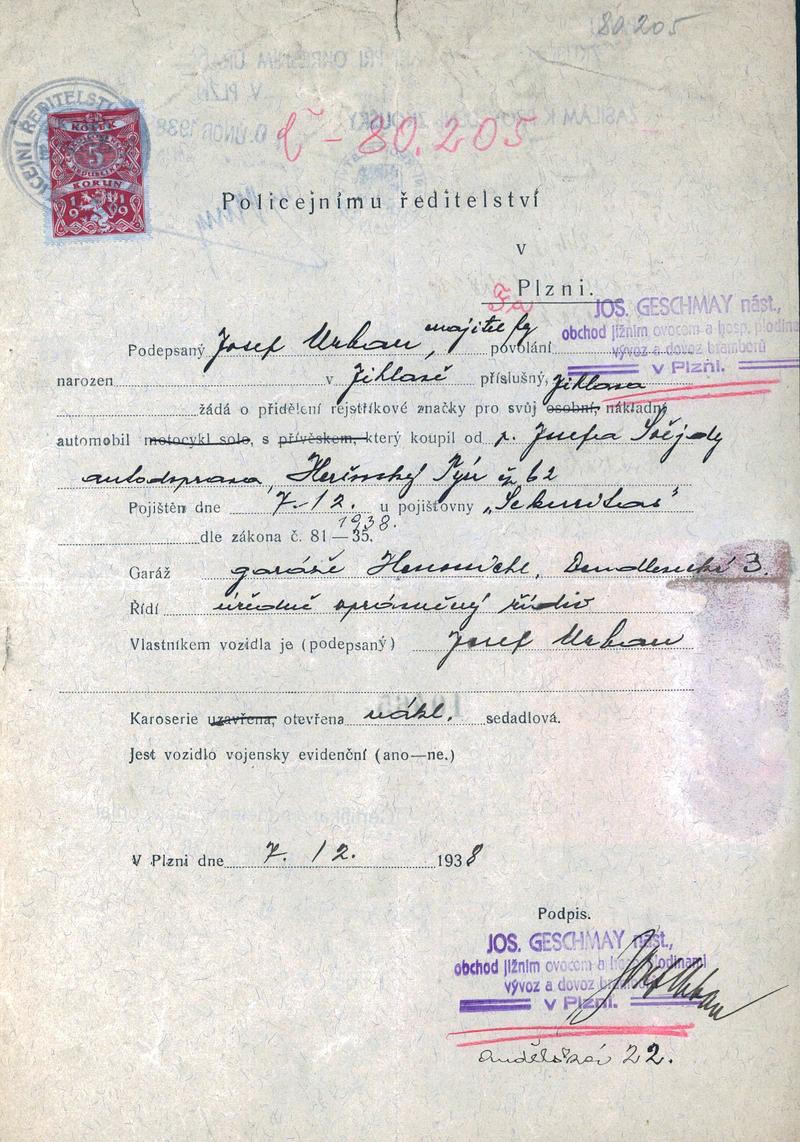 80.205
č - 80.205
KOLEK
5
KORUN
1919
Policejnímu ředitelství
v
Plzni.
Fa
JOS. GESCHMAY nást.,
obchod jižním ovocem a hosp. plodina
vývoz a dovoz bramborů
v Plzni.
Podepsaný Josef Urban, majitel fy povolání
narozen v Jihlavě příslušný, Jihlava
žádá o přidělení rejstříkové značky pro svůj osobní, nákladní
automobil motocykl solo, s přívěskem, který koupil od p. Josefa
autodoprava, Horšovský Týn č. 62
Pojištěn dne 7. 12. 1938. u pojišťovny „Sekuritas"
dle zákona č. 81—35.
Garáž garáže 3.
Řídí úředně oprávněný řidič
Vlastníkem vozidla je (podepsaný) Josef Urban
Karoserie uzavřena, otevřena nákl. sedadlová.
Jest vozidlo vojensky evidenční (ano—ne.)
V Plzni dne 7. 12. 1938
Podpis.
JOS. GESCHMAY nást.,
obchod jižním ovocem a hosp. plodinami
vývoz a dovoz bramborů
v Plzni.
Josef Urban
Andělská 22.